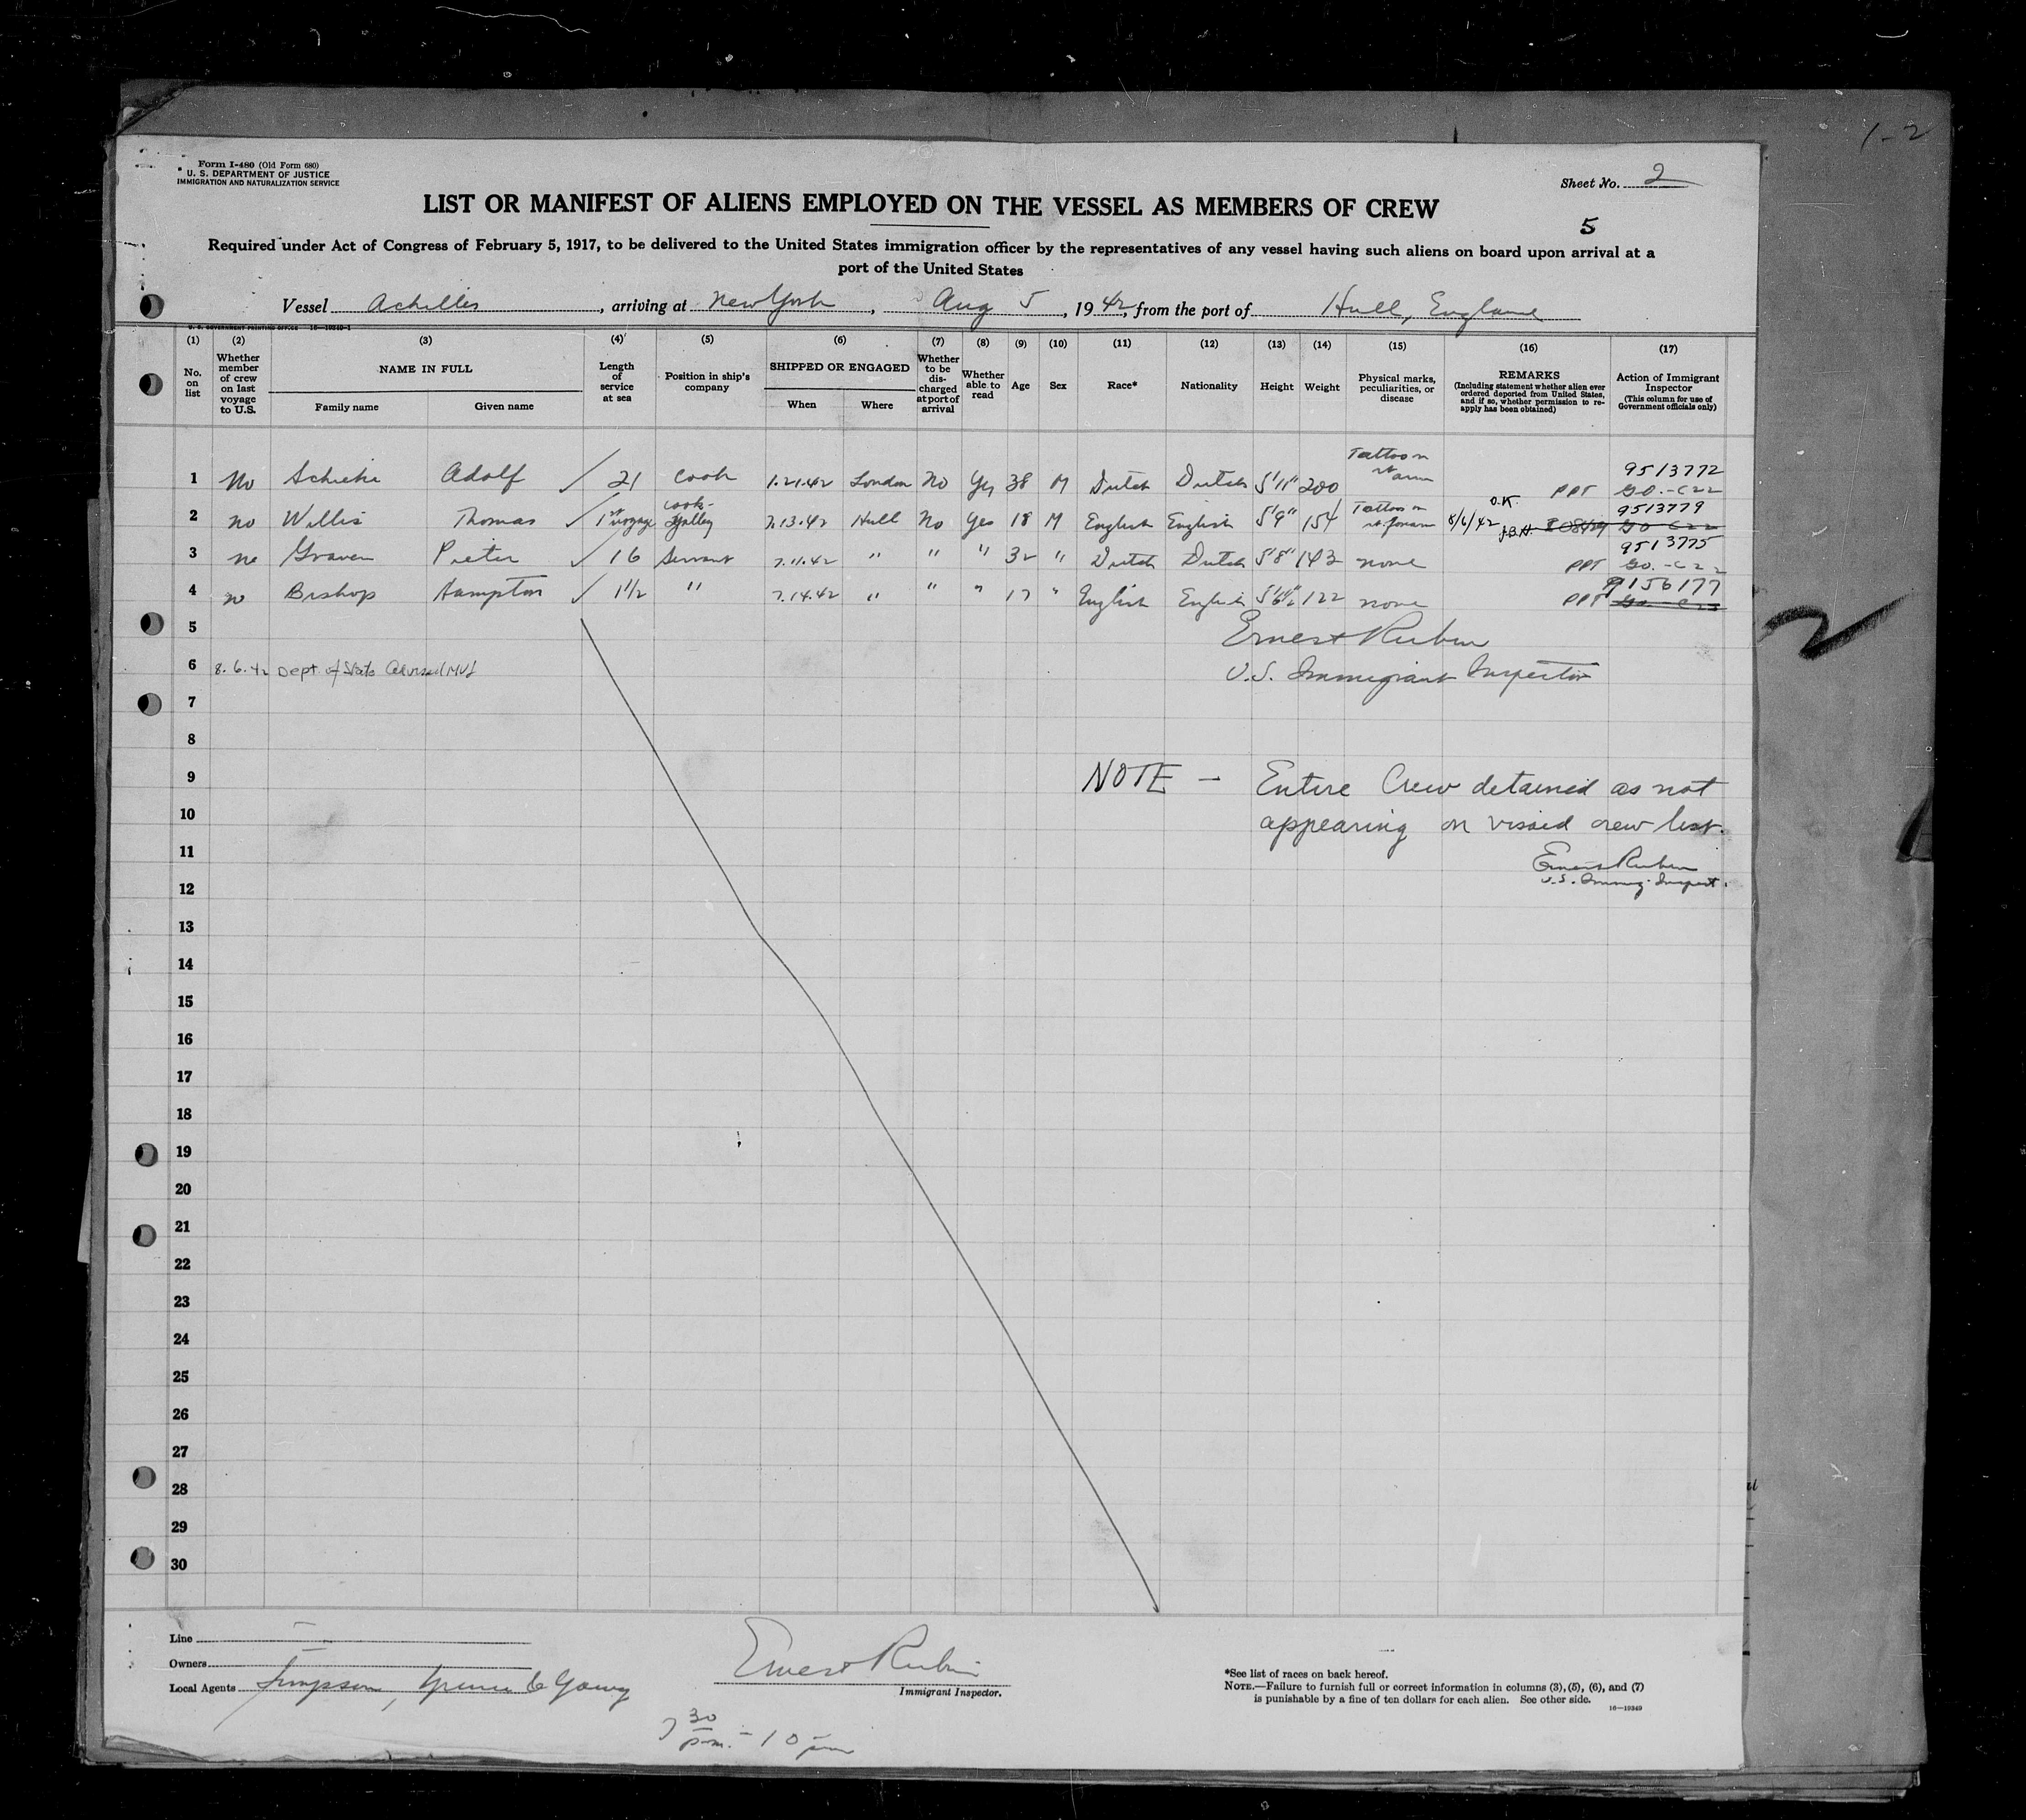 1-2
Form I-480 (Old Form 680)
U. S. DEPARTMENT OF JUSTICE
IMMIGRATION AND NATURALIZATION SERVICE
Sheet No. 2
LIST OR MANIFEST OF ALIENS EMPLOYED ON THE VESSEL AS MEMBERS OF CREW
5
Required under Act of Congress of February 5, 1917, to be delivered to the United States immigration officer by the representatives of any vessel having such aliens on board upon arrival at a
port of the United States
Vessel Achilles, arriving at New York, Aug 5, 1942, from the port of Hull, England
U. S. GOVERNMENT PRINTING OFFICE 16-19349-1
(1) (2) (3) (4) (5) (6) (7) (8) (9) (10) (11) (12) (13) (14) (15) (16) (17)
No. on list
Whether member of crew on last voyage to U.S.
NAME IN FULL
Family name
Given name
Length of service at sea
Position in ship's company
SHIPPED OR ENGAGED
When
Where
Whether to be discharged at port of arrival
Whether able to read
Age
Sex
Race*
Nationality
Height
Weight
Physical marks, peculiarities, or disease
REMARKS
(Including statement whether alien ever ordered deported from United States, and if so, whether permission to re-apply has been obtained)
Action of Immigrant Inspector
(This column for use of Government officials only)
1 No Adolf 21 Cook 1.21.42 London No Yes 38 M Dutch Dutch 5'11" 200 Tattoo on rt arm PPT 9513772
2 no Willis Thomas 1st voyage cook-galley 7.13.42 Hull No Yes 18 M English English 5'9" 154 Tattoo on rt forearm 8/6/42 O.K. J.B.H. 9513779
3 no Graven Pieter 16 Servant 7.11.42 " " " 32 " Dutch Dutch 5'8" 143 none PPT 9513775
4 no Bishop Hampton 1 1/2 " 7.14.42 " " " 17 " English English 122 none PPT 9156177
5 Ernest Rubin
6 8.6.42 Dept. of State advised (MV) U.S. Immigrant Inspector
7
8
9 NOTE - Entire Crew detained as not
10 appearing on visaed crew list.
11 Ernest Rubin
12 U.S. Immig. Inspect.
13
14
15
16
17
18
19
20
21
22
23
24
25
26
27
28
29
30
2
Line
Owners
Local Agents Simpson, Spence & Young
Ernest Rubin
Immigrant Inspector.
7 30 p.m. - 10 pm
*See list of races on back hereof.
NOTE.—Failure to furnish full or correct information in columns (3), (5), (6), and (7)
is punishable by a fine of ten dollars for each alien. See other side.
16—19349